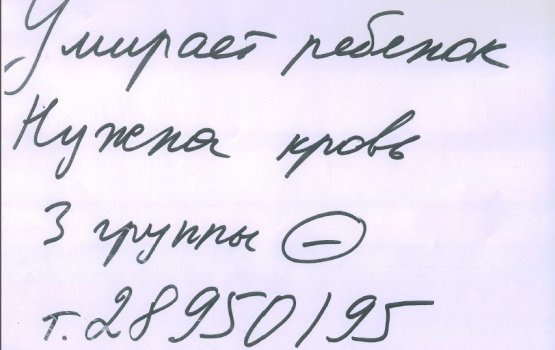 Умирает ребенок
Нужна кровь
3 группы (–)
т. 28950195